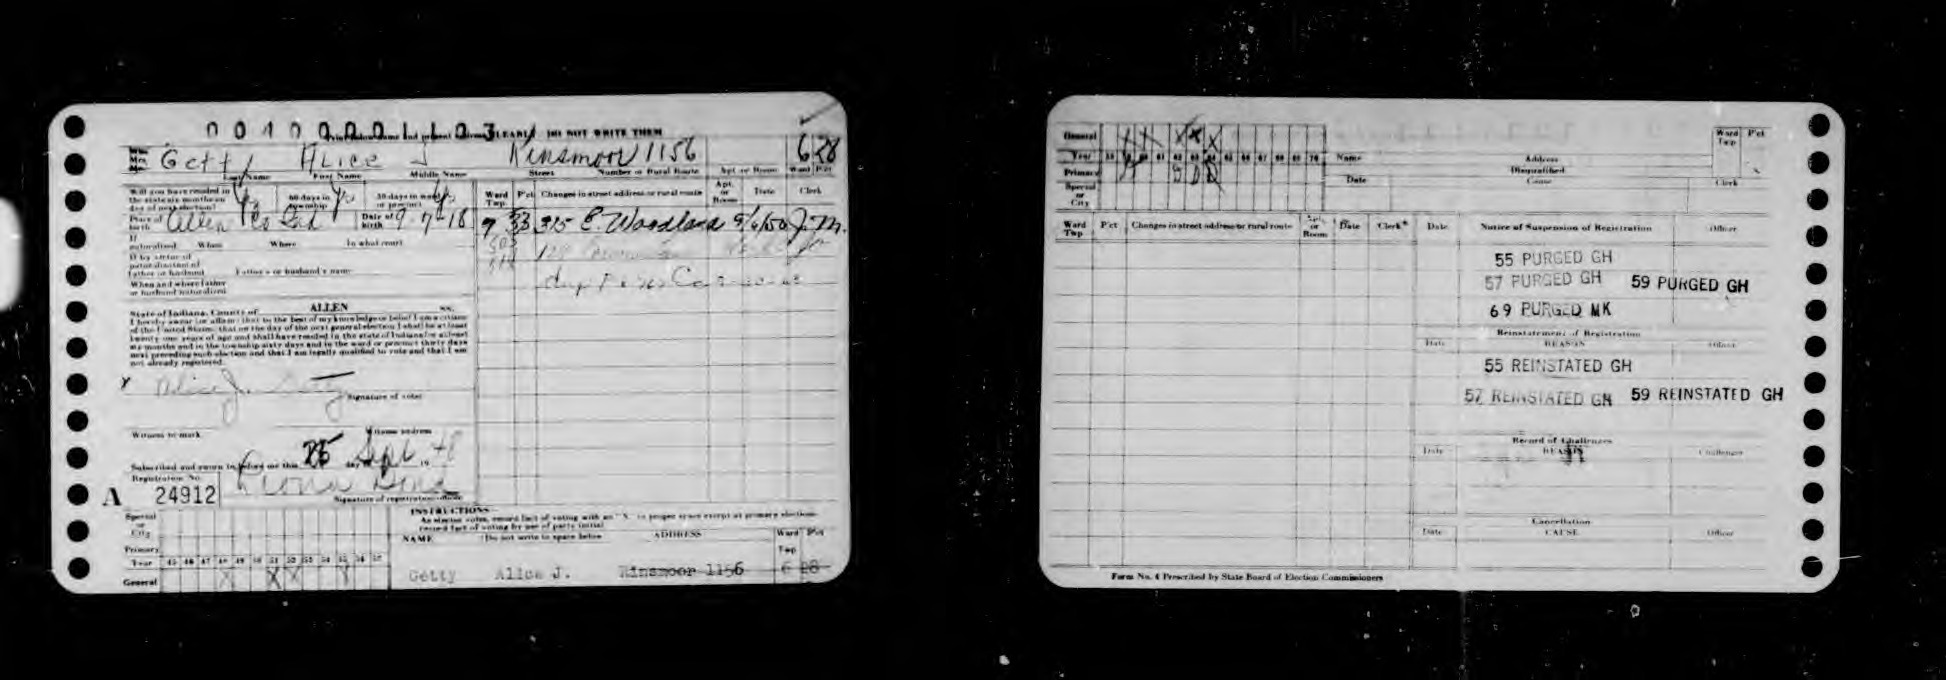 PLEASE PRINT NAMES DO NOT WRITE THEM
Getty Alice J Kinsmoor 1156 6 28
Last Name First Name Middle Name Street Number or Rural Route Apt. or Room Ward Pct
Will you have resided in the state six months on day of next election? Yes 60 days in township Yes 30 days in ward or precinct Yes
Ward Twp Pct Changes in street address or rural route Apt. or Room Date Clerk
Place of birth Allen Co Ind Date of birth 9 7 18
9 33 315 E. Woodland 5/6/50 J.M.
If naturalized When Where In what court
128
If by virtue of naturalization of Father or husband Father's or husband's name
When and where father or husband naturalized
State of Indiana, County of ALLEN ss.
I hereby swear (or affirm) that to the best of my knowledge or belief I am a citizen
of the United States; that on the day of the next general election I shall be at least
twenty-one years of age and shall have resided in the state of Indiana for at least
six months and in the township sixty days and in the ward or precinct thirty days
next preceding such election and that I am legally qualified to vote and that I am
not already registered.
X Alice J. Getty
Signature of voter
Witness to mark Witness address
Subscribed and sworn to before me this 25 day Sept 19 48
Registration No.
A 24912
Signature of registration officer
INSTRUCTIONS
An election voter, record fact of voting with an "X" in proper space except at primary elections
record fact of voting by use of party initial
Special or City
NAME Do not write in space below ADDRESS Ward Twp Pct
Primary
Year 45 46 47 48 49 50 51 52 53 54 55 56 57
General X X X
Getty Alice J. Kinsmoor 1156 6 28
General X X X X X
Ward Twp Pct
Year 58 59 60 61 62 63 64 65 66 67 68 69 70
Name Address
Primary
Disqualified
Special or City
Date Cause Clerk
Ward Twp Pct Changes in street address or rural route Apt. or Room Date Clerk Date Notice of Suspension of Registration Officer
55 PURGED GH
57 PURGED GH 59 PURGED GH
69 PURGED MK
Reinstatement of Registration
Date REASON Officer
55 REINSTATED GH
57 REINSTATED GH 59 REINSTATED GH
Record of Challenges
Date REASON Challenger
Cancellation
Date CAUSE Officer
Form No. 4 Prescribed by State Board of Election Commissioners